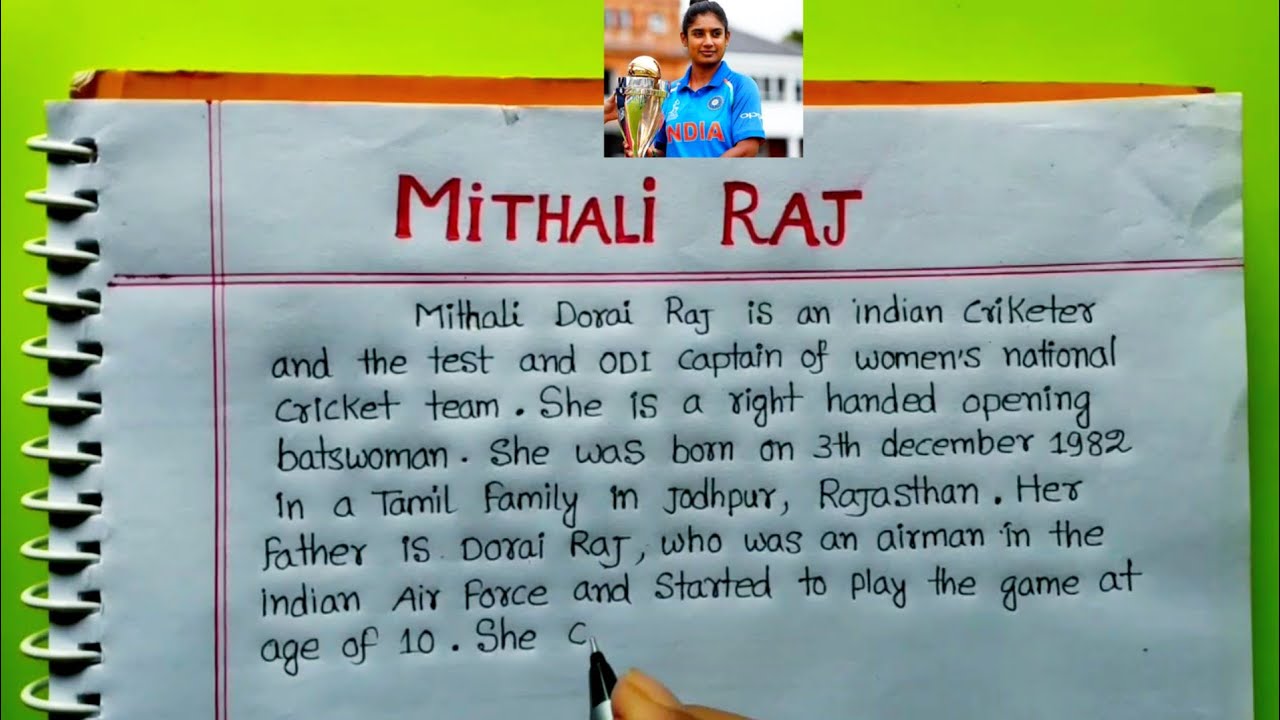 INDIA
oppo
MiTHALi RAJ
Mithali Dorai Raj is an indian Criketer
and the test and ODI captain of women's national
Cricket team. She is a right handed opening
batswoman. She was born on 3th december 1982
in a Tamil family in Jodhpur, Rajasthan. Her
father is Dorai Raj, who was an airman in the
indian Air Force and Started to play the game at
age of 10. She C